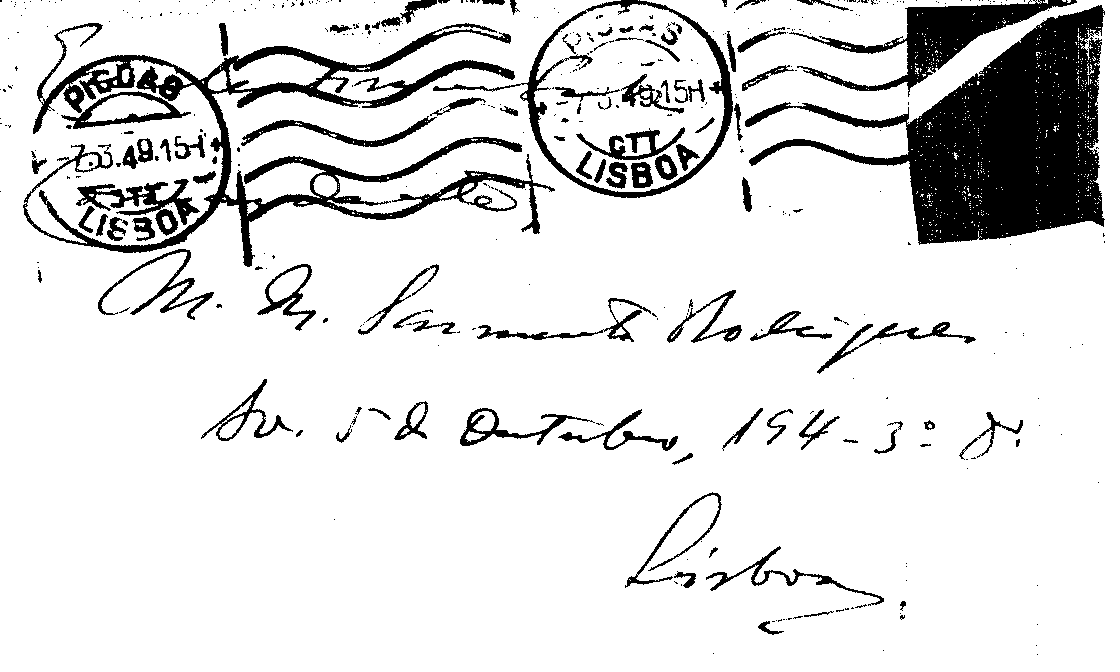 PICOAS
-7.3.49.15H
CTT
LISBOA
PICOAS
-7.3.49.15H
CTT
LISBOA
M. M. Sarmento Rodrigues
Av. 5 de Outubro, 194-3º d.
Lisboa